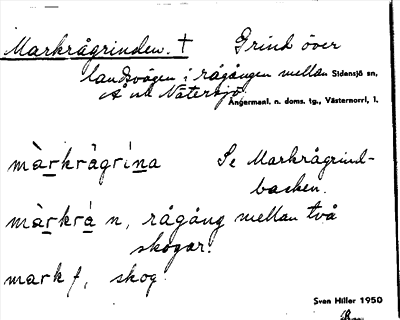 Markrågrinden. † Grind över
landsvägen i rågången mellan Sidensjö sn,
Å och Nätersjö.
Ångermanl. n. doms. tg., Västernorrl. l.
màrkrågrína Se Markrågrind-
backen.
màrkrá n, rågång mellan två
skogar.
mark f, skog
Sven Hiller 1950